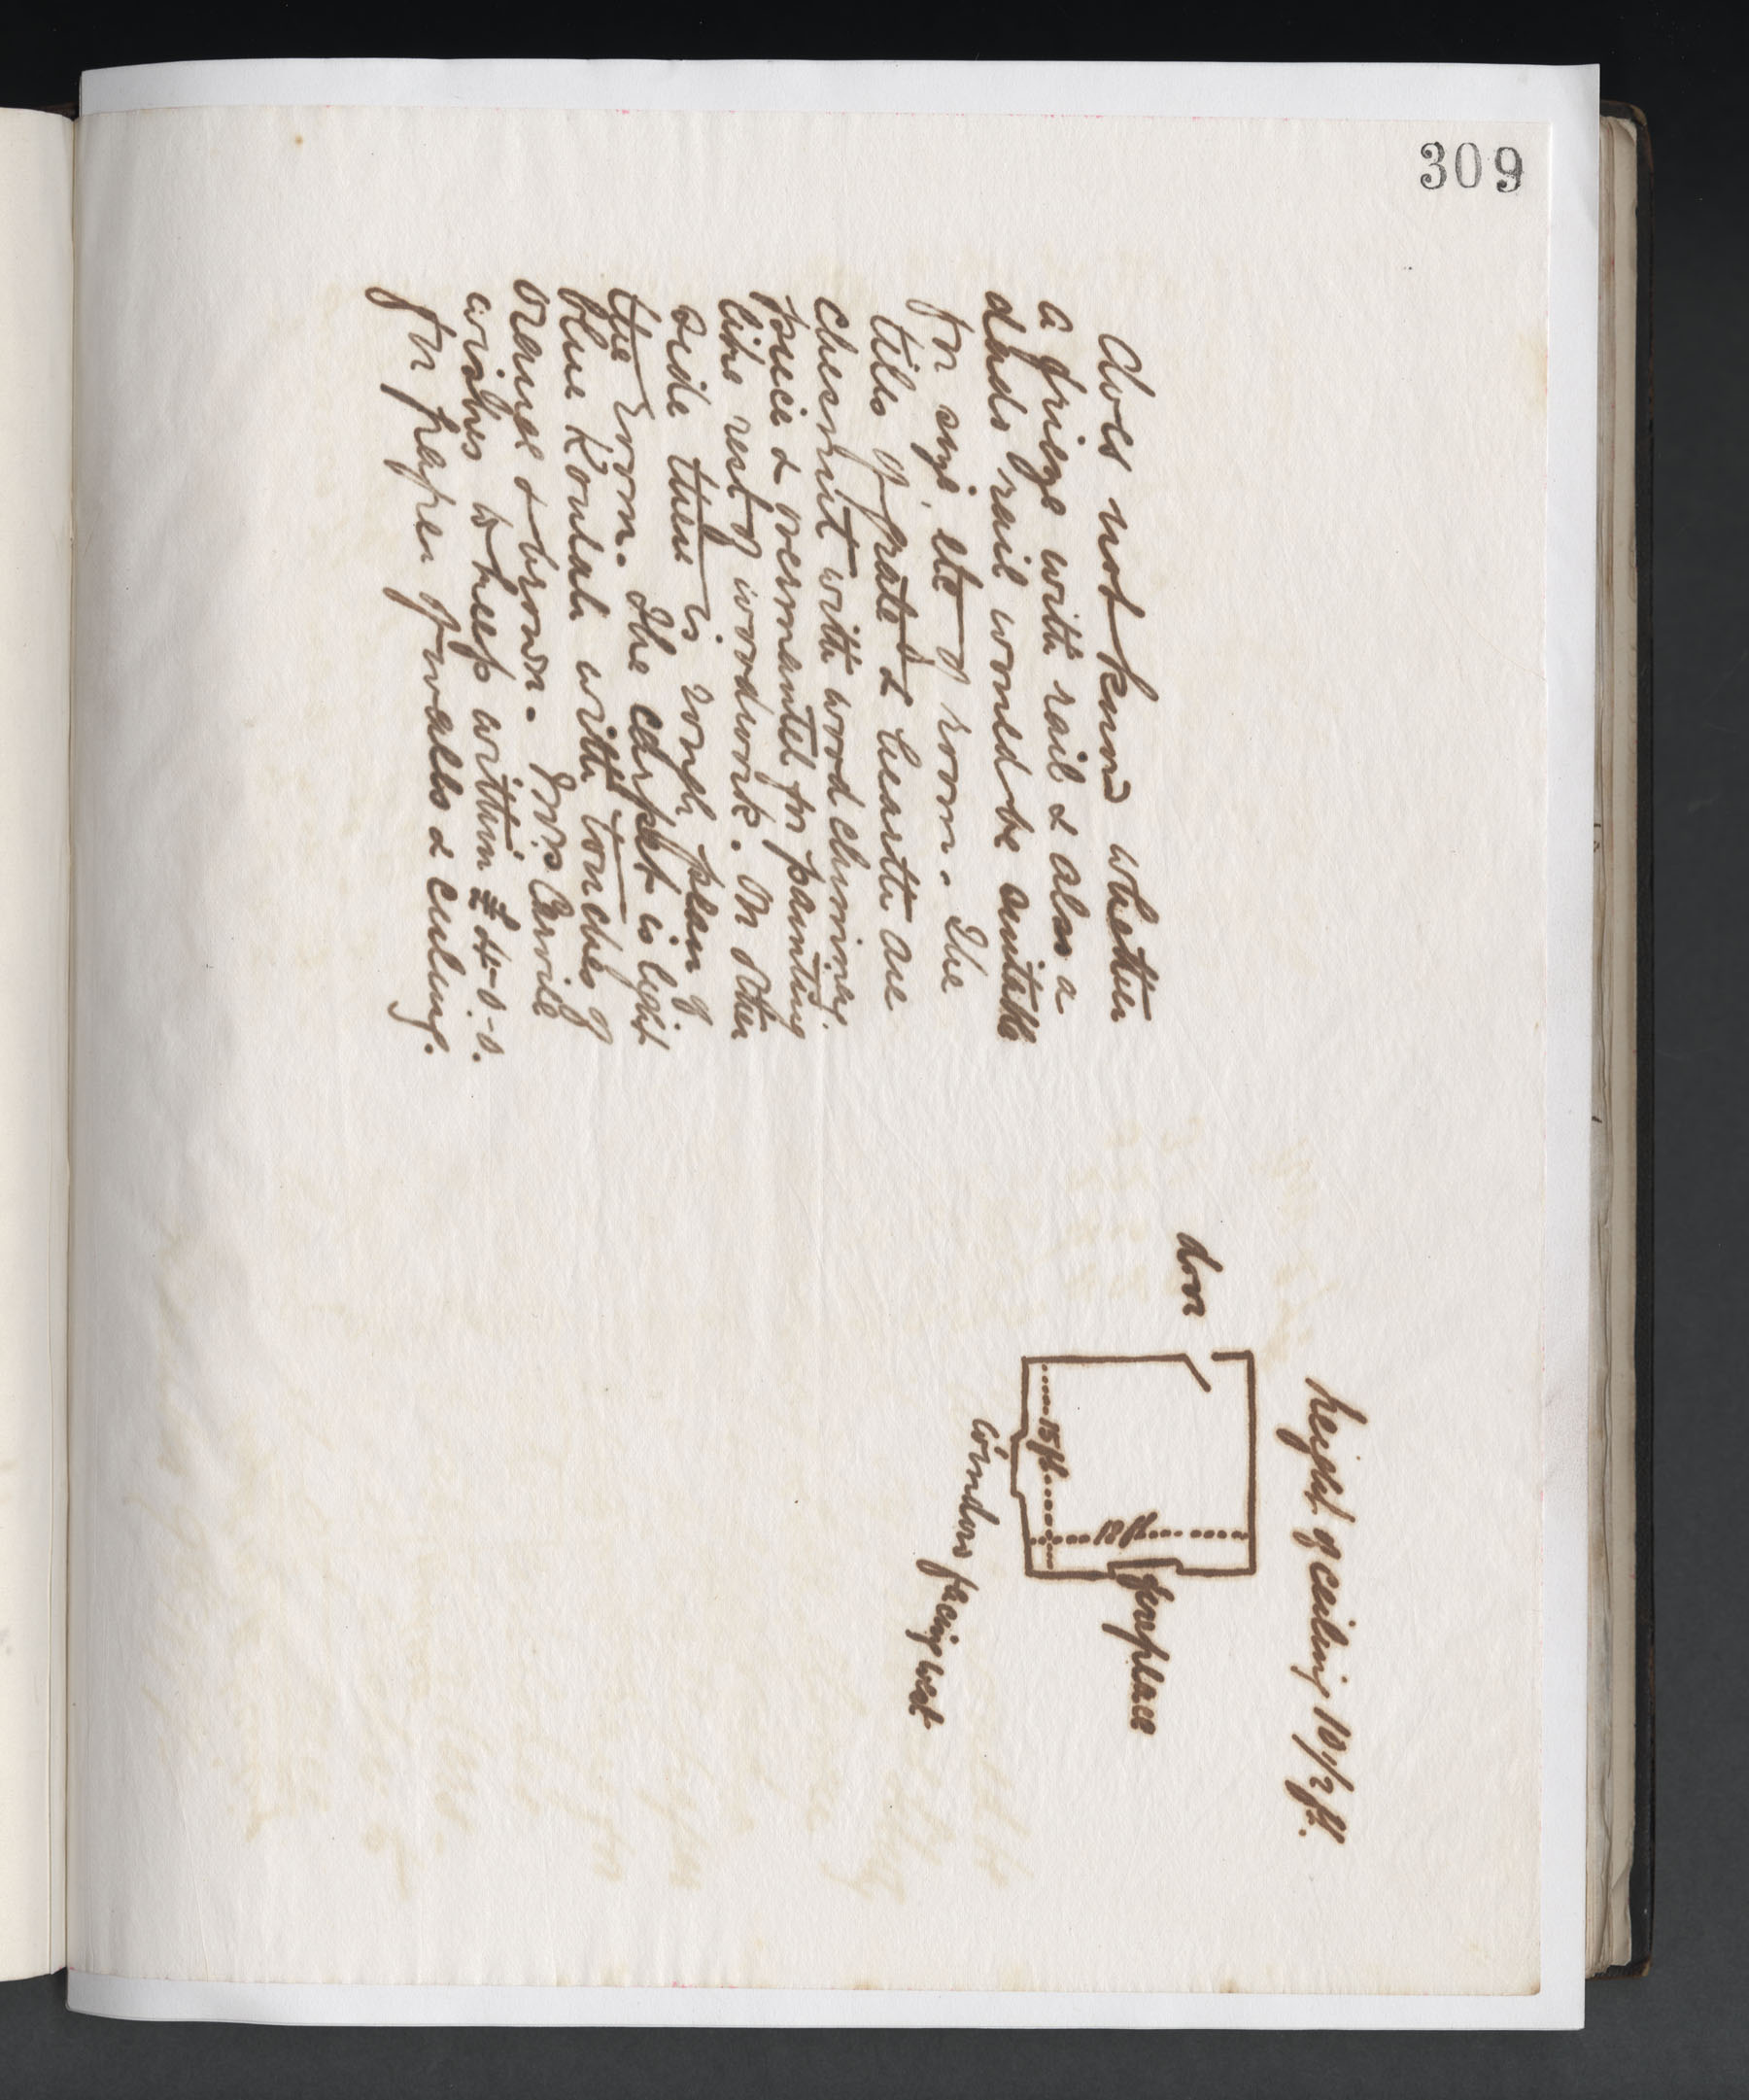 309
does not know whether
a frieze with rail & also a
dado rail would be suitable
for size etc of room. The
tiles of grate & hearth are
chestnut with wood chimney
piece & overmantel for painting
like rest of woodwork. On other
side there is rough plan of
the room. The carpet is light
blue Koulah with touches of
orange & brown. Mrs Carvill
wishes to keep within £4-0-0.
for paper of walls & ceiling.
height of ceiling 10 1/2 ft.
door
fireplace
18 ft
15 ft
Windows facing west